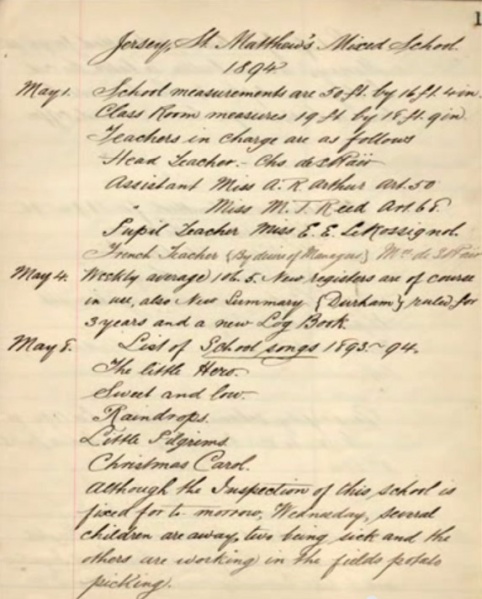 1
Jersey, St. Matthew's Mixed School.
1894
May 1. School measurements are 50 ft. by 16 ft. 4 in.
Class Room measures 19 ft by 18 ft. 9 in.
Teachers in charge are as follows
Head Teacher:- Chs de
Assistant Miss A. R. Arthur Art. 50
" Miss M. T. Reed Art 68.
Pupil Teacher Miss E. E. LeRossignol.
French Teacher {By desire of Managers} de
May 4. Weekly average 106.5. New registers are of course
in use, also New Summary {Durham} ruled for
3 years and a new Log Book.
May 8. List of School songs 1893-94.
The little Hero.
Sweet and low.
Raindrops.
Little Pilgrims.
Christmas Carol.
Although the Inspection of this school is
fixed for to-morrow, Wednesday, several
children are away, two being sick and the
others are working in the fields potato
picking.